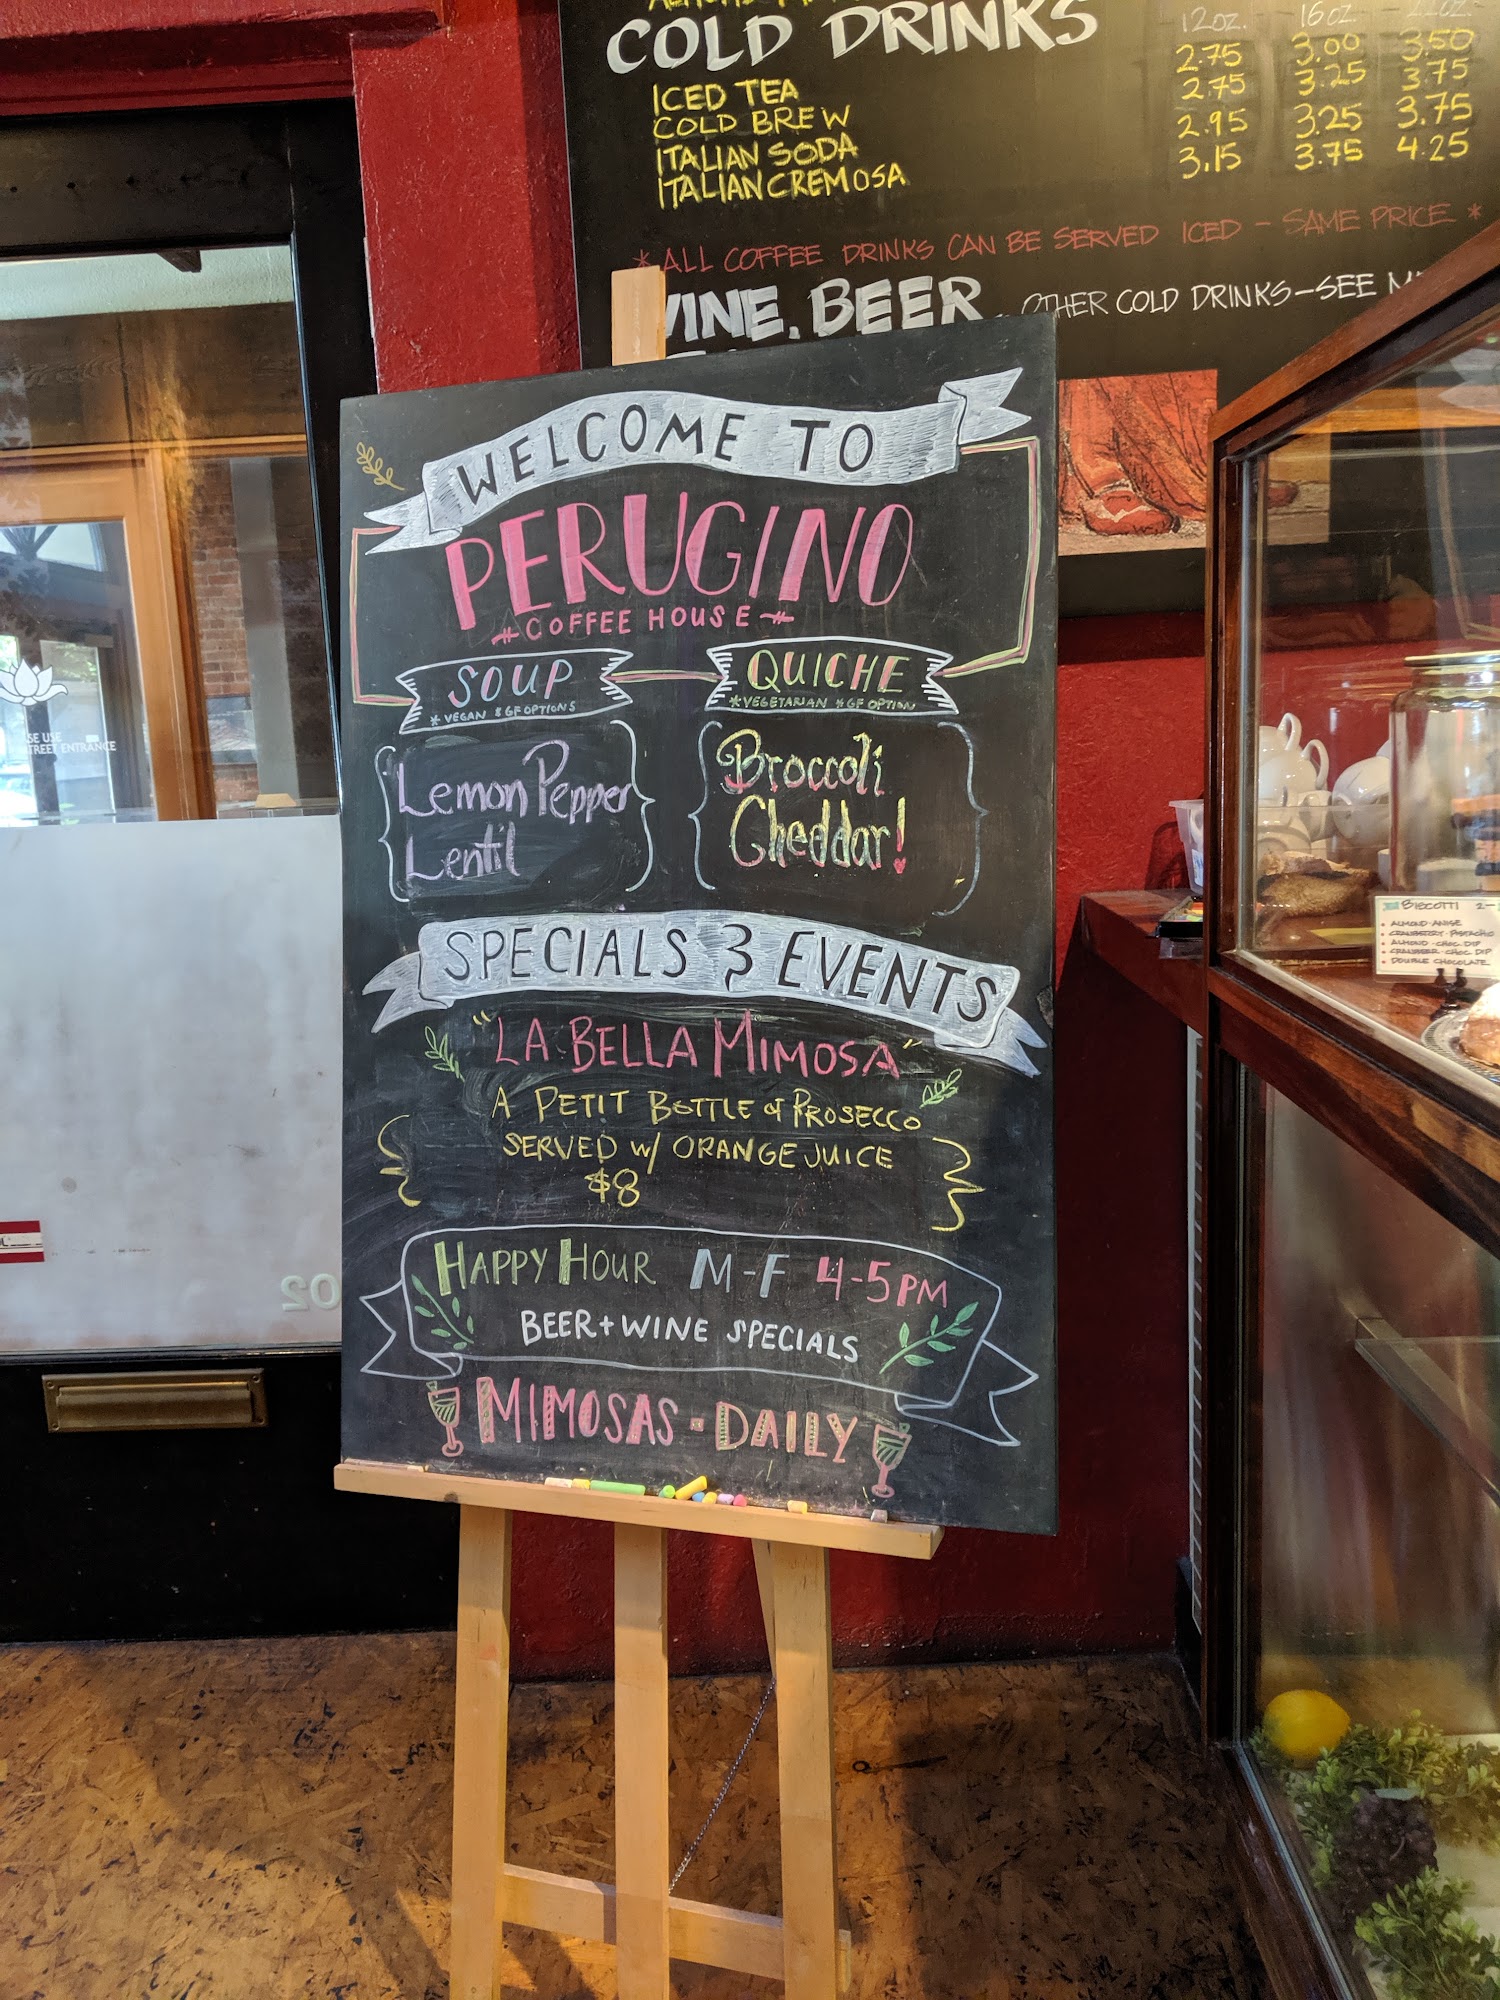 COLD DRINKS
12OZ. 16OZ
2.75 3.00 3.50
ICED TEA 2.75 3.25 3.75
COLD BREW 2.95 3.25 3.75
ITALIAN SODA 3.15 3.75 4.25
ITALIAN CREMOSA
*ALL COFFEE DRINKS CAN BE SERVED ICED - SAME PRICE *
WINE, BEER OTHER COLD DRINKS-SEE
WELCOME TO
PERUGINO
COFFEE HOUSE
SOUP QUICHE
*VEGAN & GF OPTIONS *VEGETARIAN *GF OPTION
Lemon Pepper
Lentil
Broccoli
Cheddar!
SPECIALS & EVENTS
"LA BELLA MIMOSA"
A PETIT BOTTLE of PROSECCO
SERVED W/ ORANGE JUICE
$8
HAPPY HOUR M-F 4-5PM
BEER + WINE SPECIALS
MIMOSAS - DAILY
USE
STREET ENTRANCE
BISCOTTI
ALMOND-ANISE
CRANBERRY-PISTACHIO
ALMOND-CHOC. DIP
CRANBERR-CHOC DIP
DOUBLE CHOCOLATE